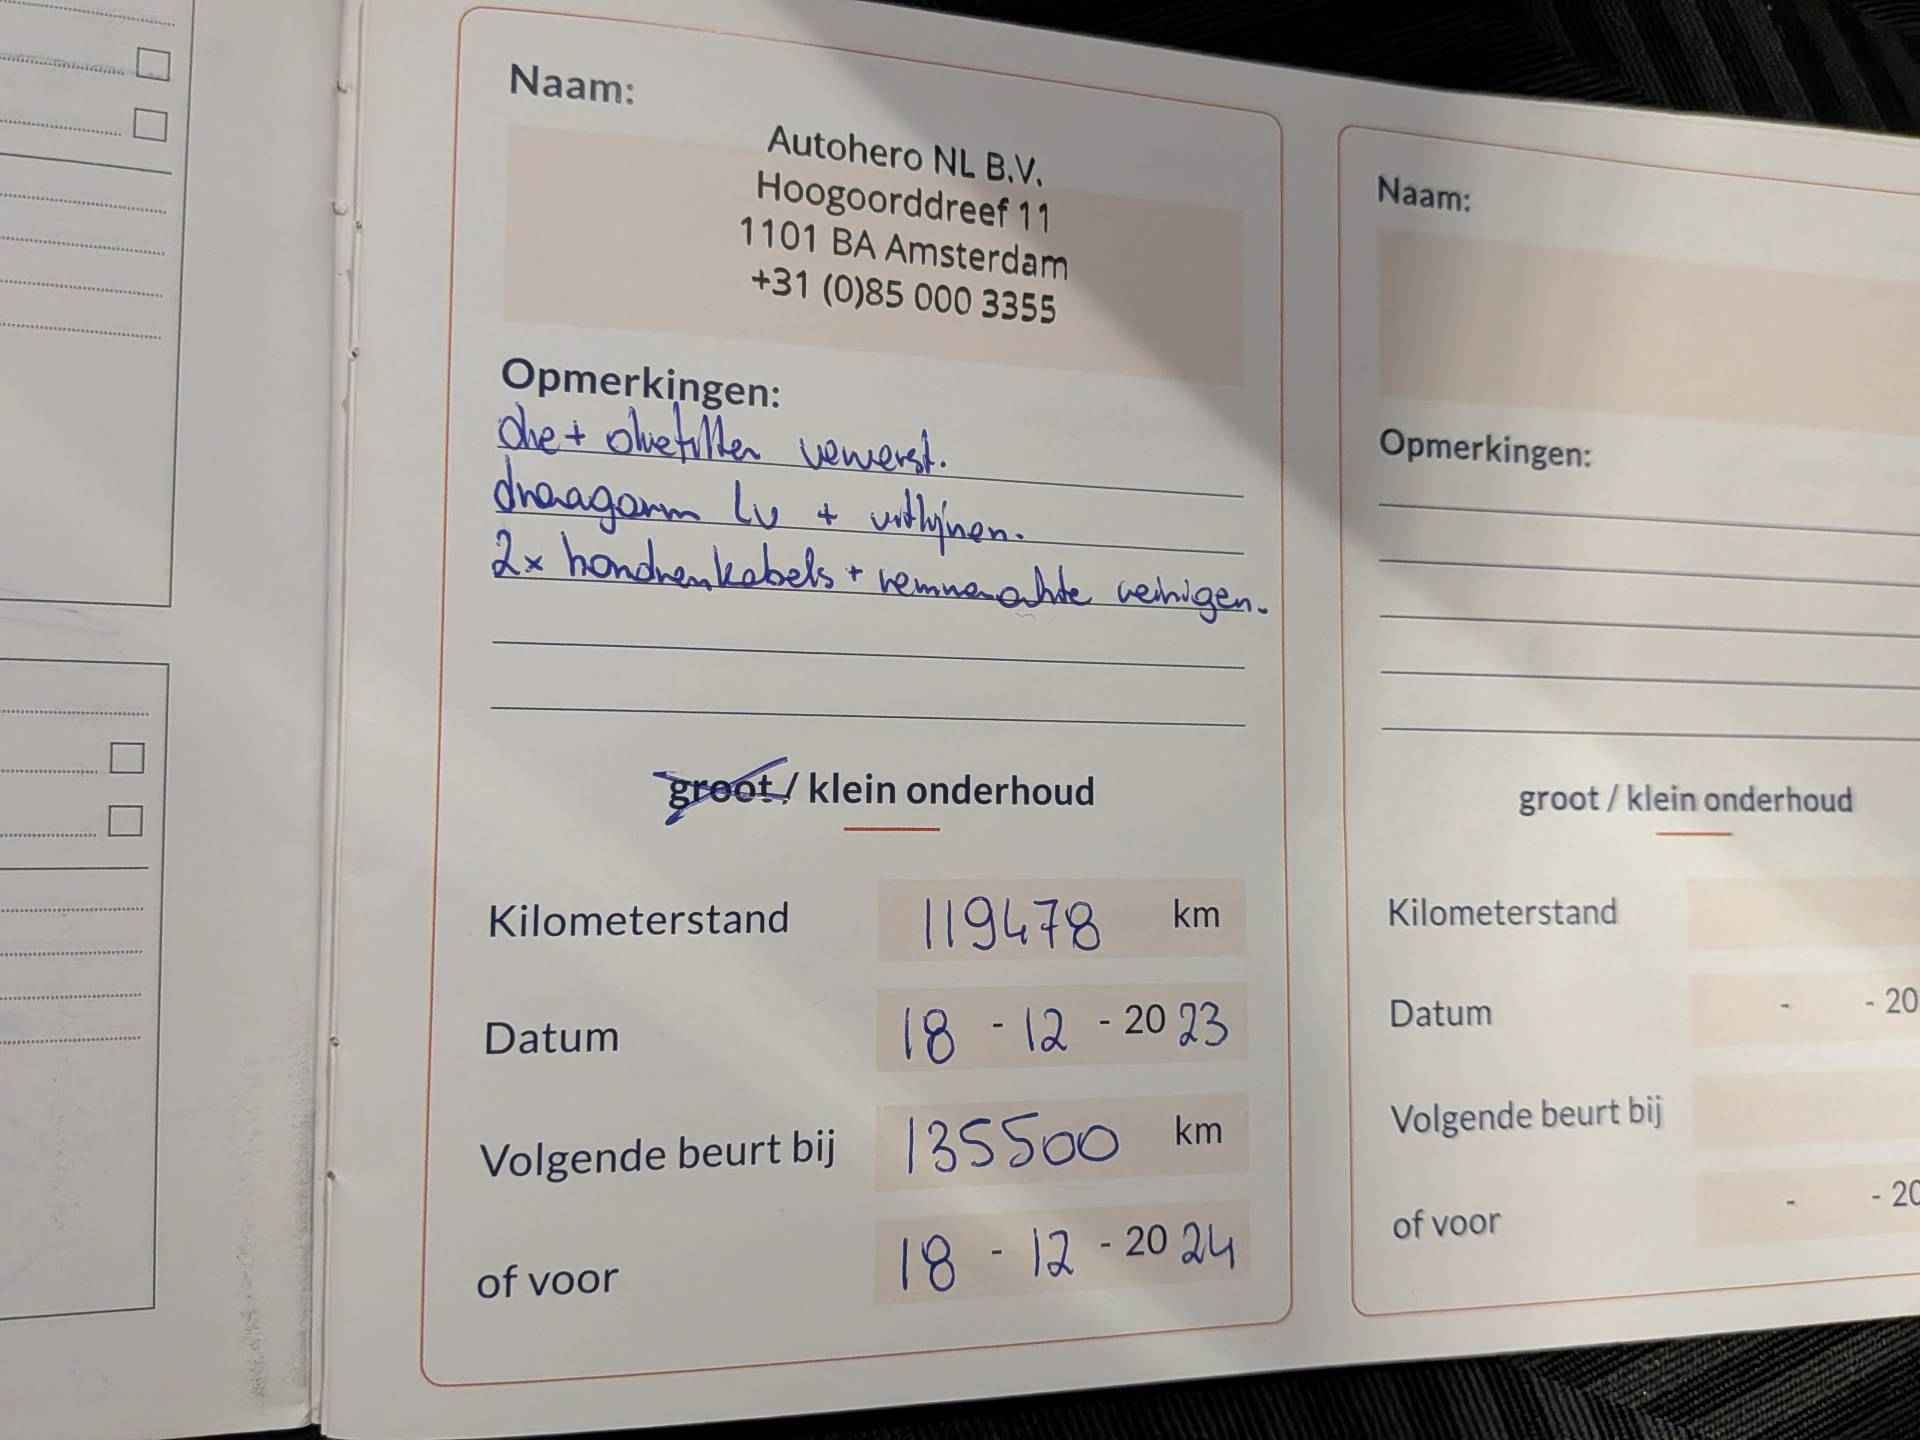 Naam:
Autohero NL B.V.
Hoogoorddreef 11
1101 BA Amsterdam
+31 (0)85 000 3355
Opmerkingen:
olie + oliefilter ververst.
draagarm LV + uitlijnen.
2x handremkabels + remmen achter reinigen.
groot / klein onderhoud
Kilometerstand 119478 km
Datum 18 - 12 - 2023
Volgende beurt bij 135500 km
of voor 18 - 12 - 2024
Naam:
Opmerkingen:
groot / klein onderhoud
Kilometerstand
Datum - - 20
Volgende beurt bij
of voor - - 20